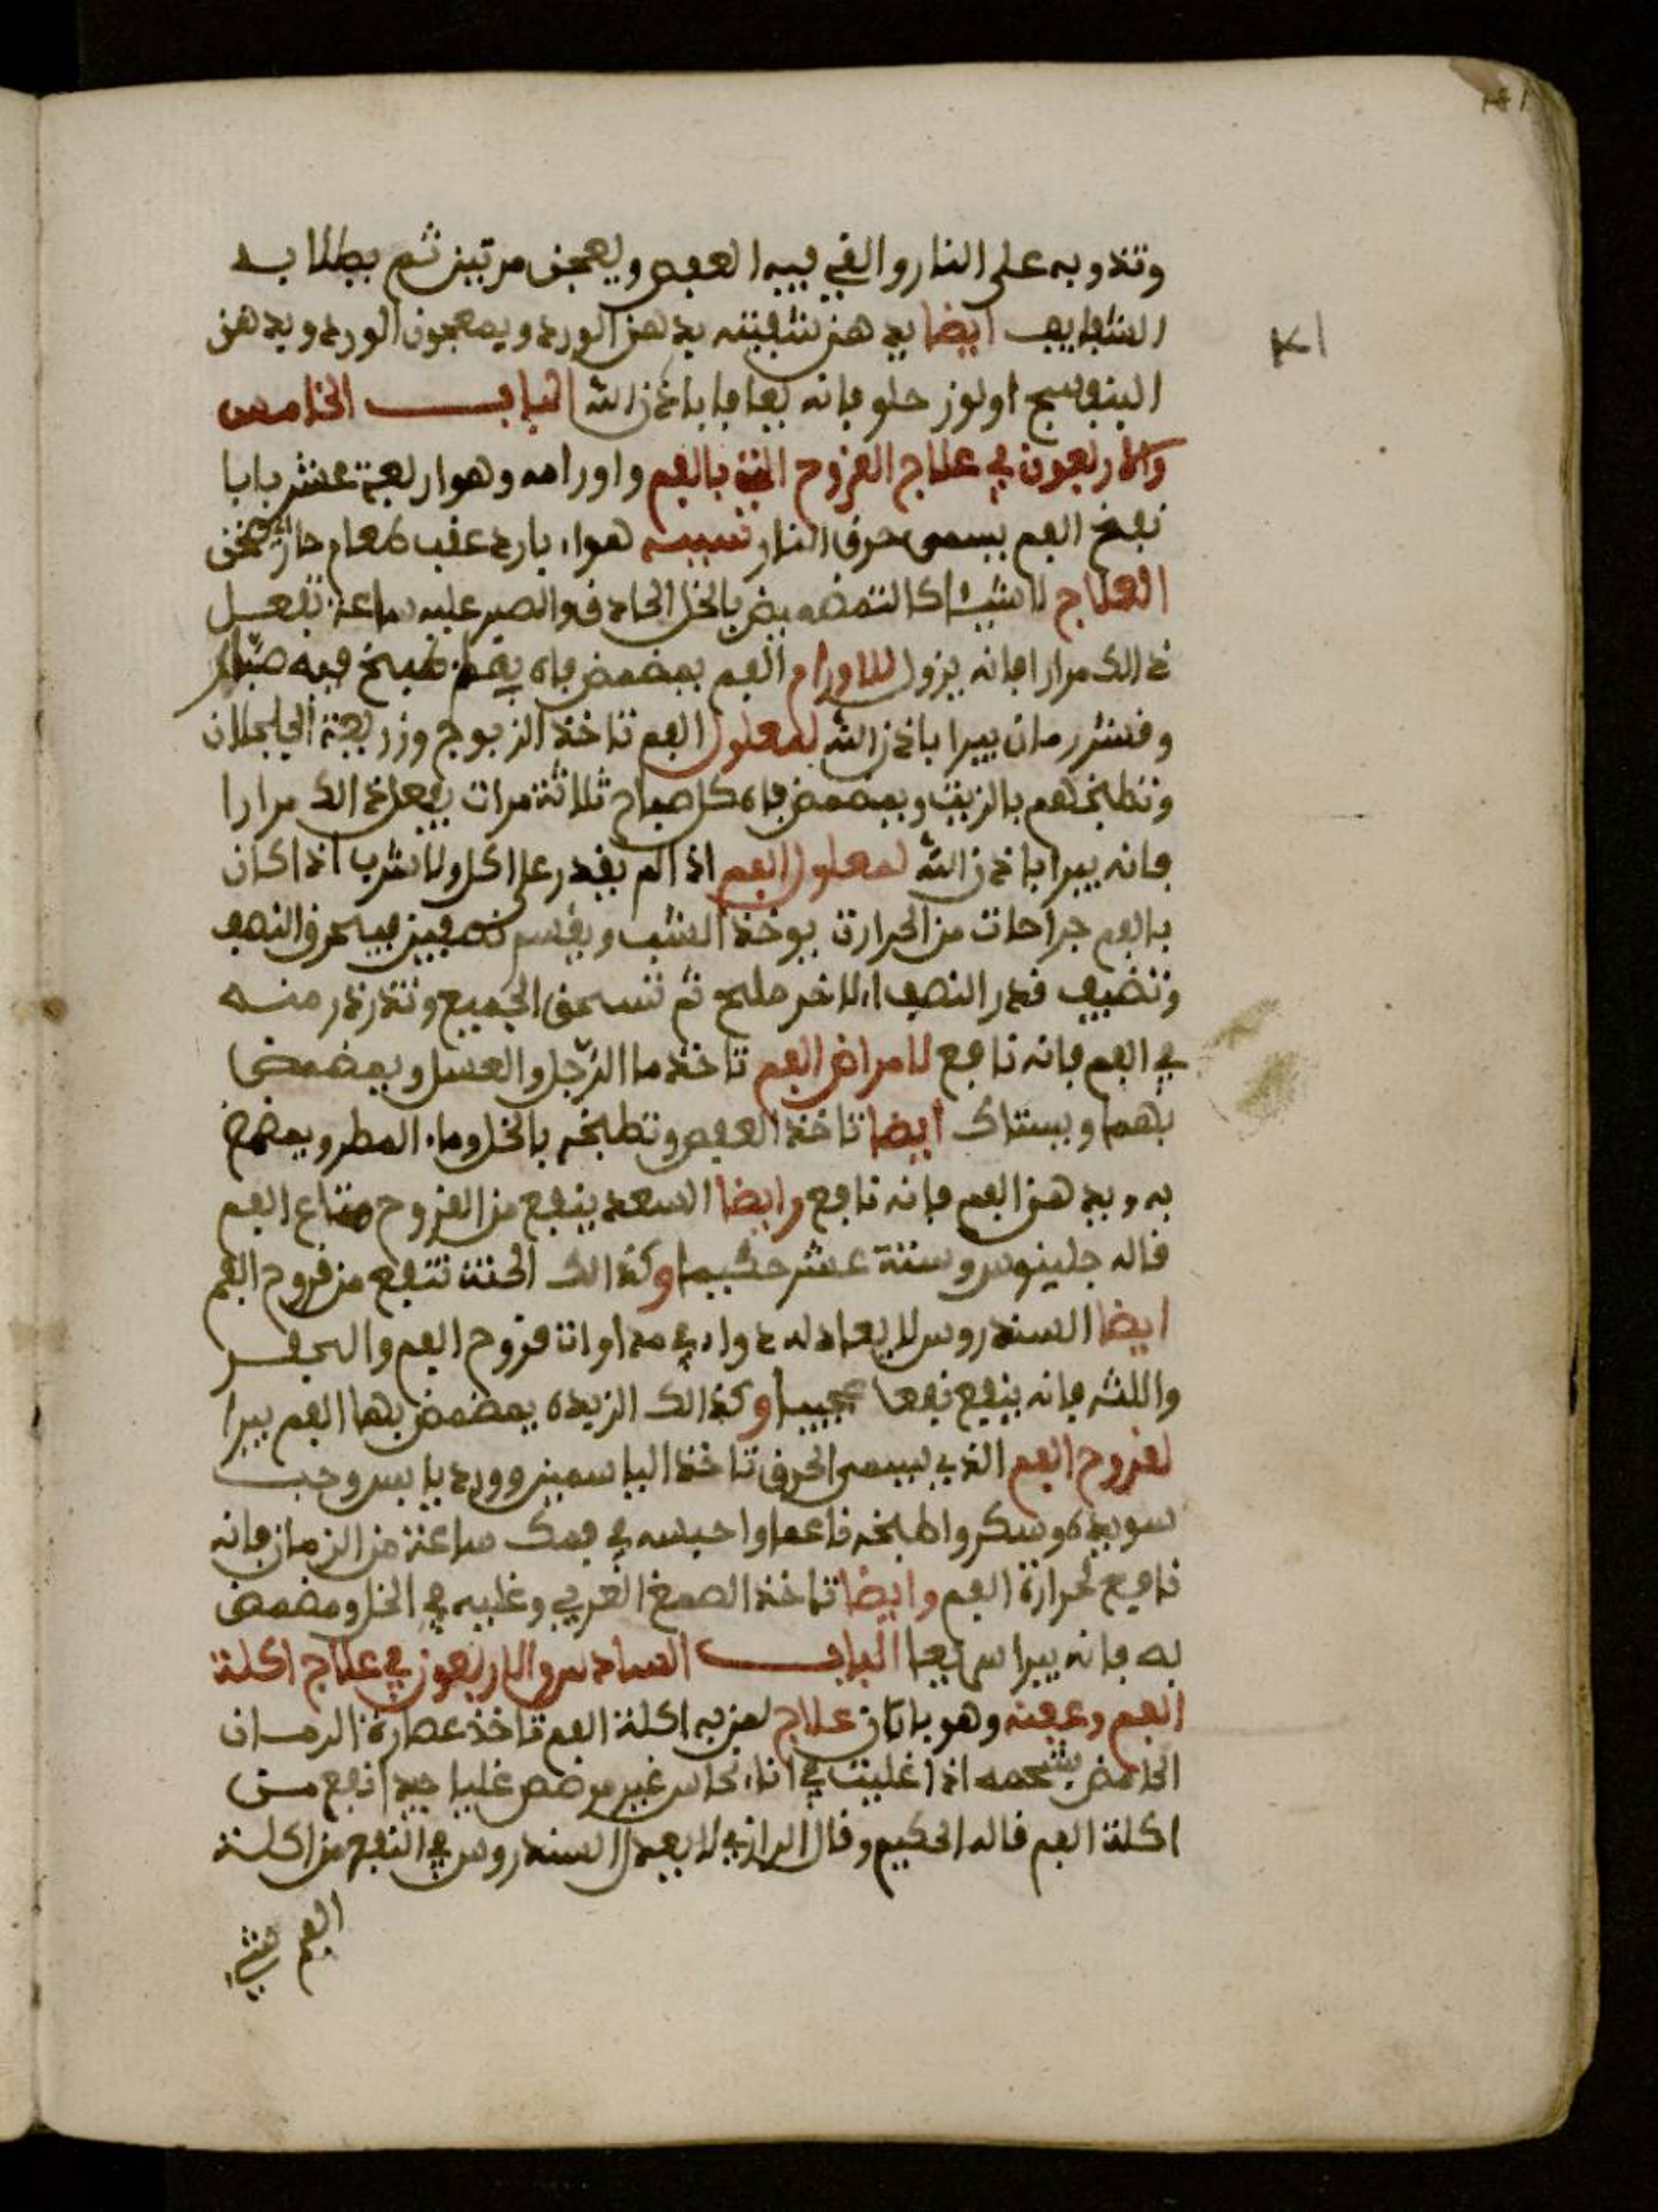 وتذوبه على النار والقي فيه العفص ويعجن مرتين ثم يطلا به
الشفايف ايضا يدهن شفيته بدهن الورد وبمعجون الورد وبدهن
البنفسج او لوز حلو فانه يعافا باذن الله الباب الخامس
والاربعون في علاج القروح التي بالفم واورامه وهو اربعة عشر بابا
نفخ الفم يسمى حرق النار تسببه هواء بارد عقب طعام حار سخن
العلاج لا شيء كالتمضميض بالخل الحاذق والصبر عليه ساعة تفعل
ذالك مرارا فانه يزول للاورام الفم يمضمض فاه طبيخ فيه
وقشر رمان يبرا باذن الله لمعلول الفم تاخذ الزبوج وزريعة الجلجلان
وتطبخهم بالزيت ويمضمض فاه كل صباح ثلاثة مرات يفعل ذالك مرارا
فانه يبرا باذن الله لمعلول الفم اذا لم يقدر على اكل ولا شرب اذا كان
بالفم جراحات من الحرارة يوخذ الشب ويقسم نصفين فيحرق النصف
وتضيف قدر النصف الاخر ملح ثم تسحق الجميع وتذرذر منه
في الفم فانه نافع لامراض الفم تاخذ ما الرجل والعسل ويمضمض
بهما ويستاك ايضا تاخذ العفص وتطبخه بالخل وماء المطر ويمضمض
به ويدهن الفم فانه نافع وايضا السعد ينفع من القروح متاع الفم
قاله جلينوس وستة عشر حكيما وكذالك الحنة تنفع من قروح الفم
ايضا السندروس لا يعادله دواء في مداوات قروح الفم والحفر
واللثه فانه ينفع نفعا عجيبا وكذالك الزبده يمضمض بها الفم يبرا
لقروح الفم الذي يسمى الحرق تاخذ الياسمين وورد يابس وحب
سويده وسكر واطبخه ناعما واحبسه في فمك ساعة من الزمان فانه
نافع لحرارة الفم وايضا تاخذ الصمغ العربي وغليه في الخل ومضمض
به فانه يبرا سريعا الباب السادس والاربعون في علاج اكلة
الفم وعفنه وهو بابان علاج لمن به اكلة الفم تاخذ عصارة الرمان
الحامض بشحمه اذا غليت في اناء نحاس غير مرصص غليا جيدا نفع من
اكلة الفم قاله الحكيم وقال الرازي لا يعدل السندروس في النفع من اكلة
الفم شيء